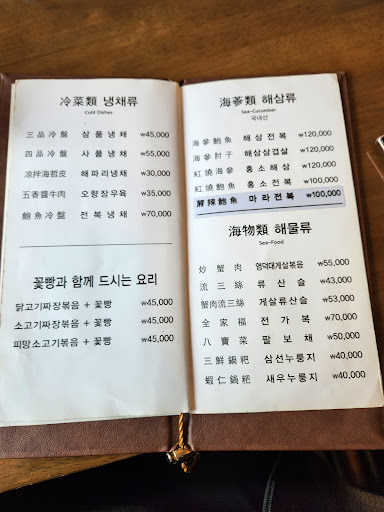 冷菜類 냉채류
Cold Dishes
三品冷盤 삼품냉채 ₩45,000
四品冷盤 사품냉채 ₩55,000
凉拌海蜇皮 해파리냉채 ₩30,000
五香醬牛肉 오향장우육 ₩35,000
鮑魚冷盤 전복냉채 ₩70,000
꽃빵과 함께 드시는 요리
닭고기짜장볶음 + 꽃빵 ₩45,000
소고기짜장볶음 + 꽃빵 ₩45,000
피망소고기볶음 + 꽃빵 ₩45,000
海蔘類 해삼류
Sea-Cucumber
국내산
海參鮑魚 해삼전복 ₩120,000
海參肘子 해삼삼겹살 ₩120,000
紅燒海參 홍소해삼 ₩120,000
紅燒鮑魚 홍소전복 ₩100,000
麻辣鮑魚 마라전복 ₩100,000
海物類 해물류
Sea-Food
炒蟹肉 영덕대게살볶음 ₩55,000
流三絲 류산슬 ₩43,000
蟹肉流三絲 게살류산슬 ₩53,000
全家福 전가복 ₩70,000
八寶菜 팔보채 ₩50,000
三鮮鍋粑 삼선누룽지 ₩40,000
蝦仁鍋粑 새우누룽지 ₩40,000